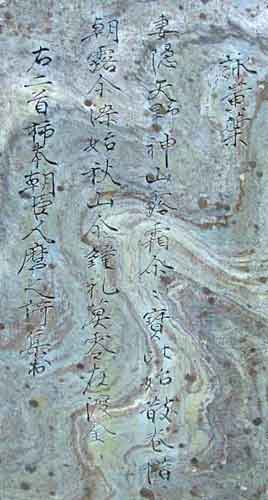 詠黄葉
妻隠矢野神山露霜尓々寶比始散巻惜
朝露尓染始秋山尓鍾礼莫零在渡金
右二首柿本朝臣人麿之謌集出